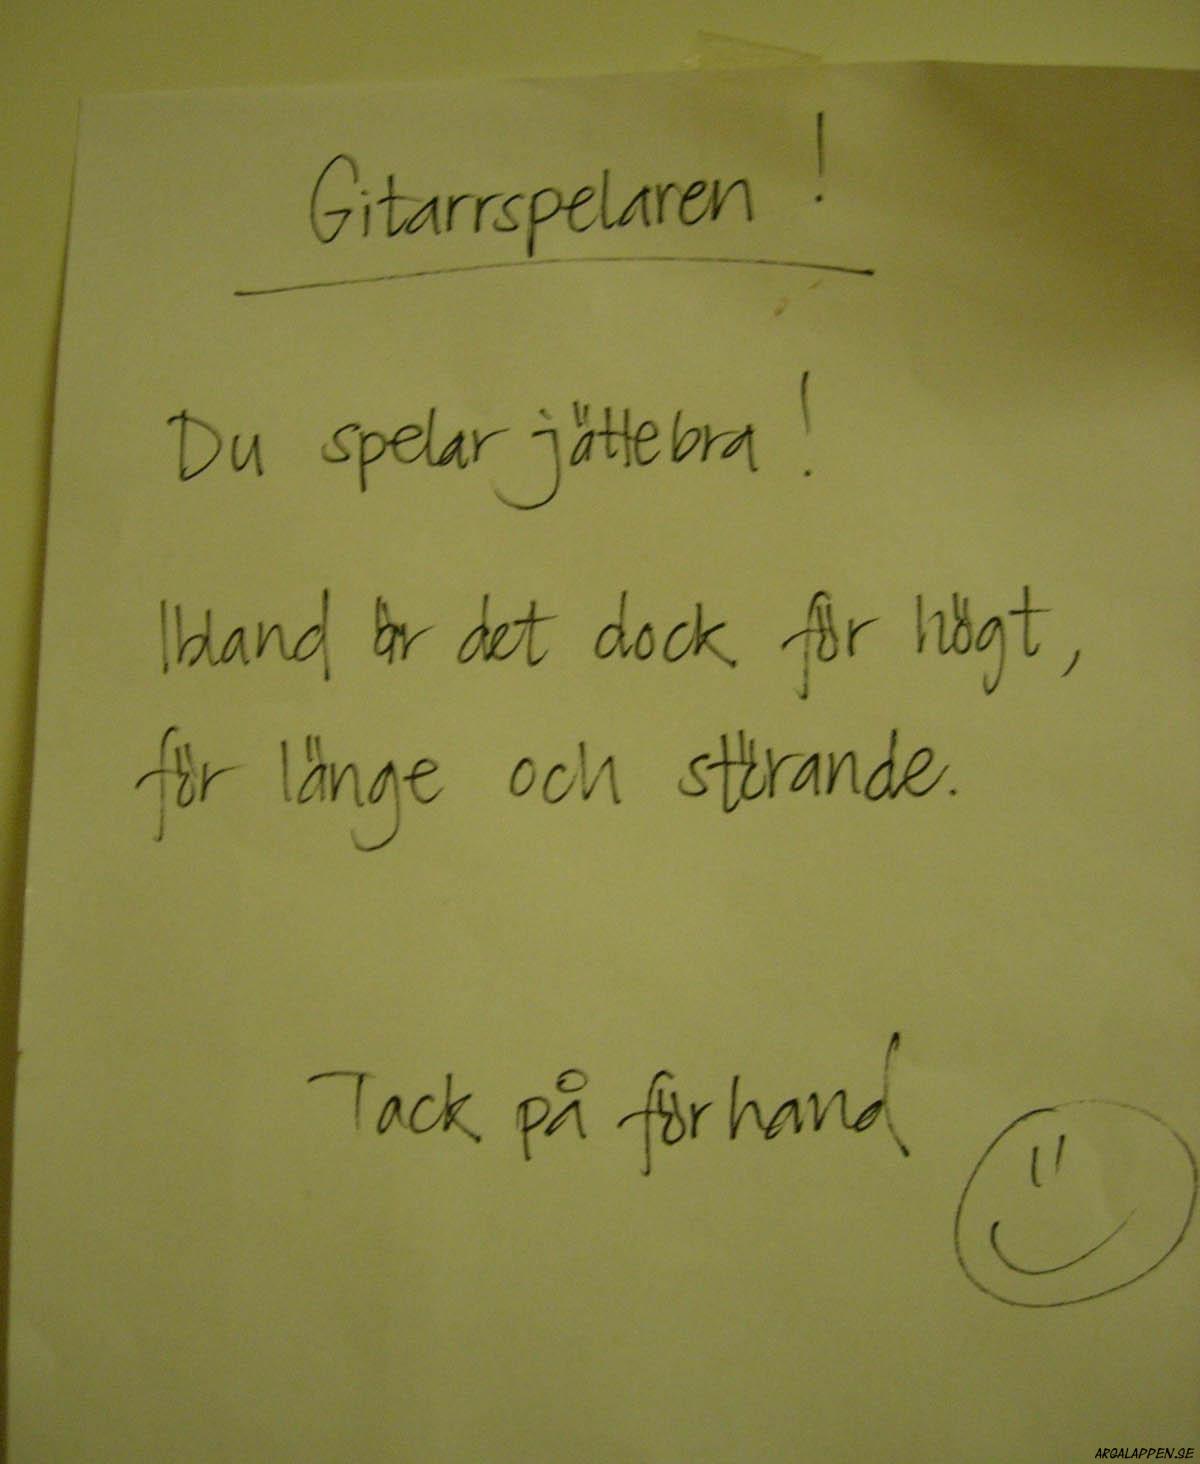 Gitarrspelaren!
Du spelar jättebra!
Ibland är det dock för högt,
för länge och störande.
Tack på förhand
ARGALAPPEN.SE